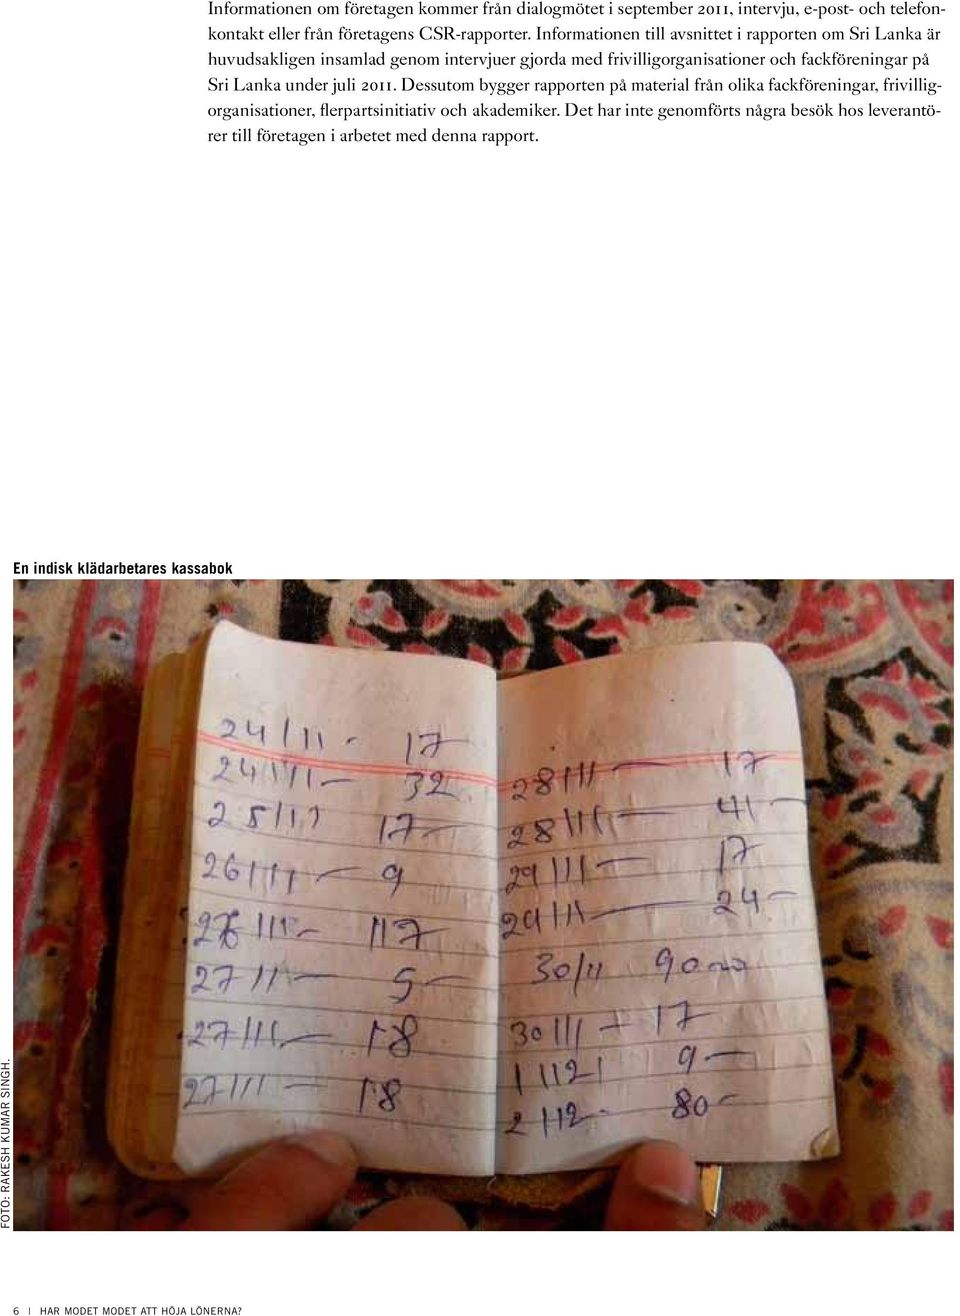 Informationen om företagen kommer från dialogmötet i september 2011, intervju, e-post- och telefon-
kontakt eller från företagens CSR-rapporter. Informationen till avsnittet i rapporten om Sri Lanka är
huvudsakligen insamlad genom intervjuer gjorda med frivilligorganisationer och fackföreningar på
Sri Lanka under juli 2011. Dessutom bygger rapporten på material från olika fackföreningar, frivillig-
organisationer, flerpartsinitiativ och akademiker. Det har inte genomförts några besök hos leverantö-
rer till företagen i arbetet med denna rapport.
En indisk klädarbetares kassabok
24/11 - 17
24/11 - 32
25/11 17-
26/11 - 9
27/11 - 5-
27/11 - 18
27/11 - 18
28/11 - 17
28/11 - 41-
29/11 - 17
29/11 - 24-
30/11
30/11 - 17
1/12 9-
2/12 - 80-
FOTO: RAKESH KUMAR SINGH.
6 | HAR MODET MODET ATT HÖJA LÖNERNA?